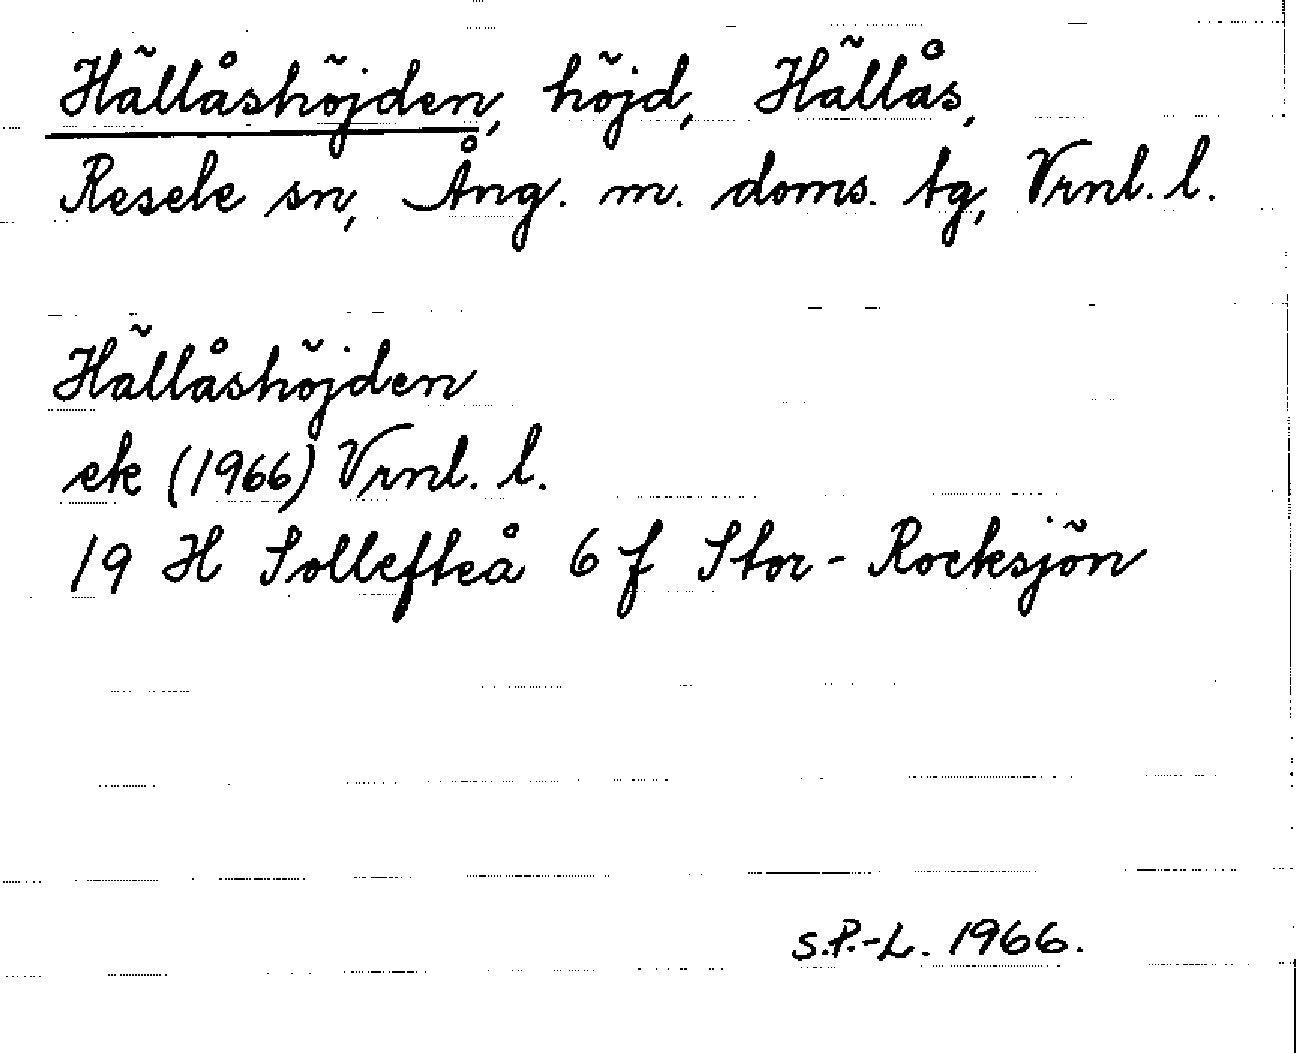 Hällåshöjden, höjd, Hällås,
Resele sn, Ång. m. doms. tg, Vrnl. l.
Hällåshöjden
ek (1966) Vrnl. l.
19 H Sollefteå 6 f Stor-Rocksjön
S.P.-L. 1966.